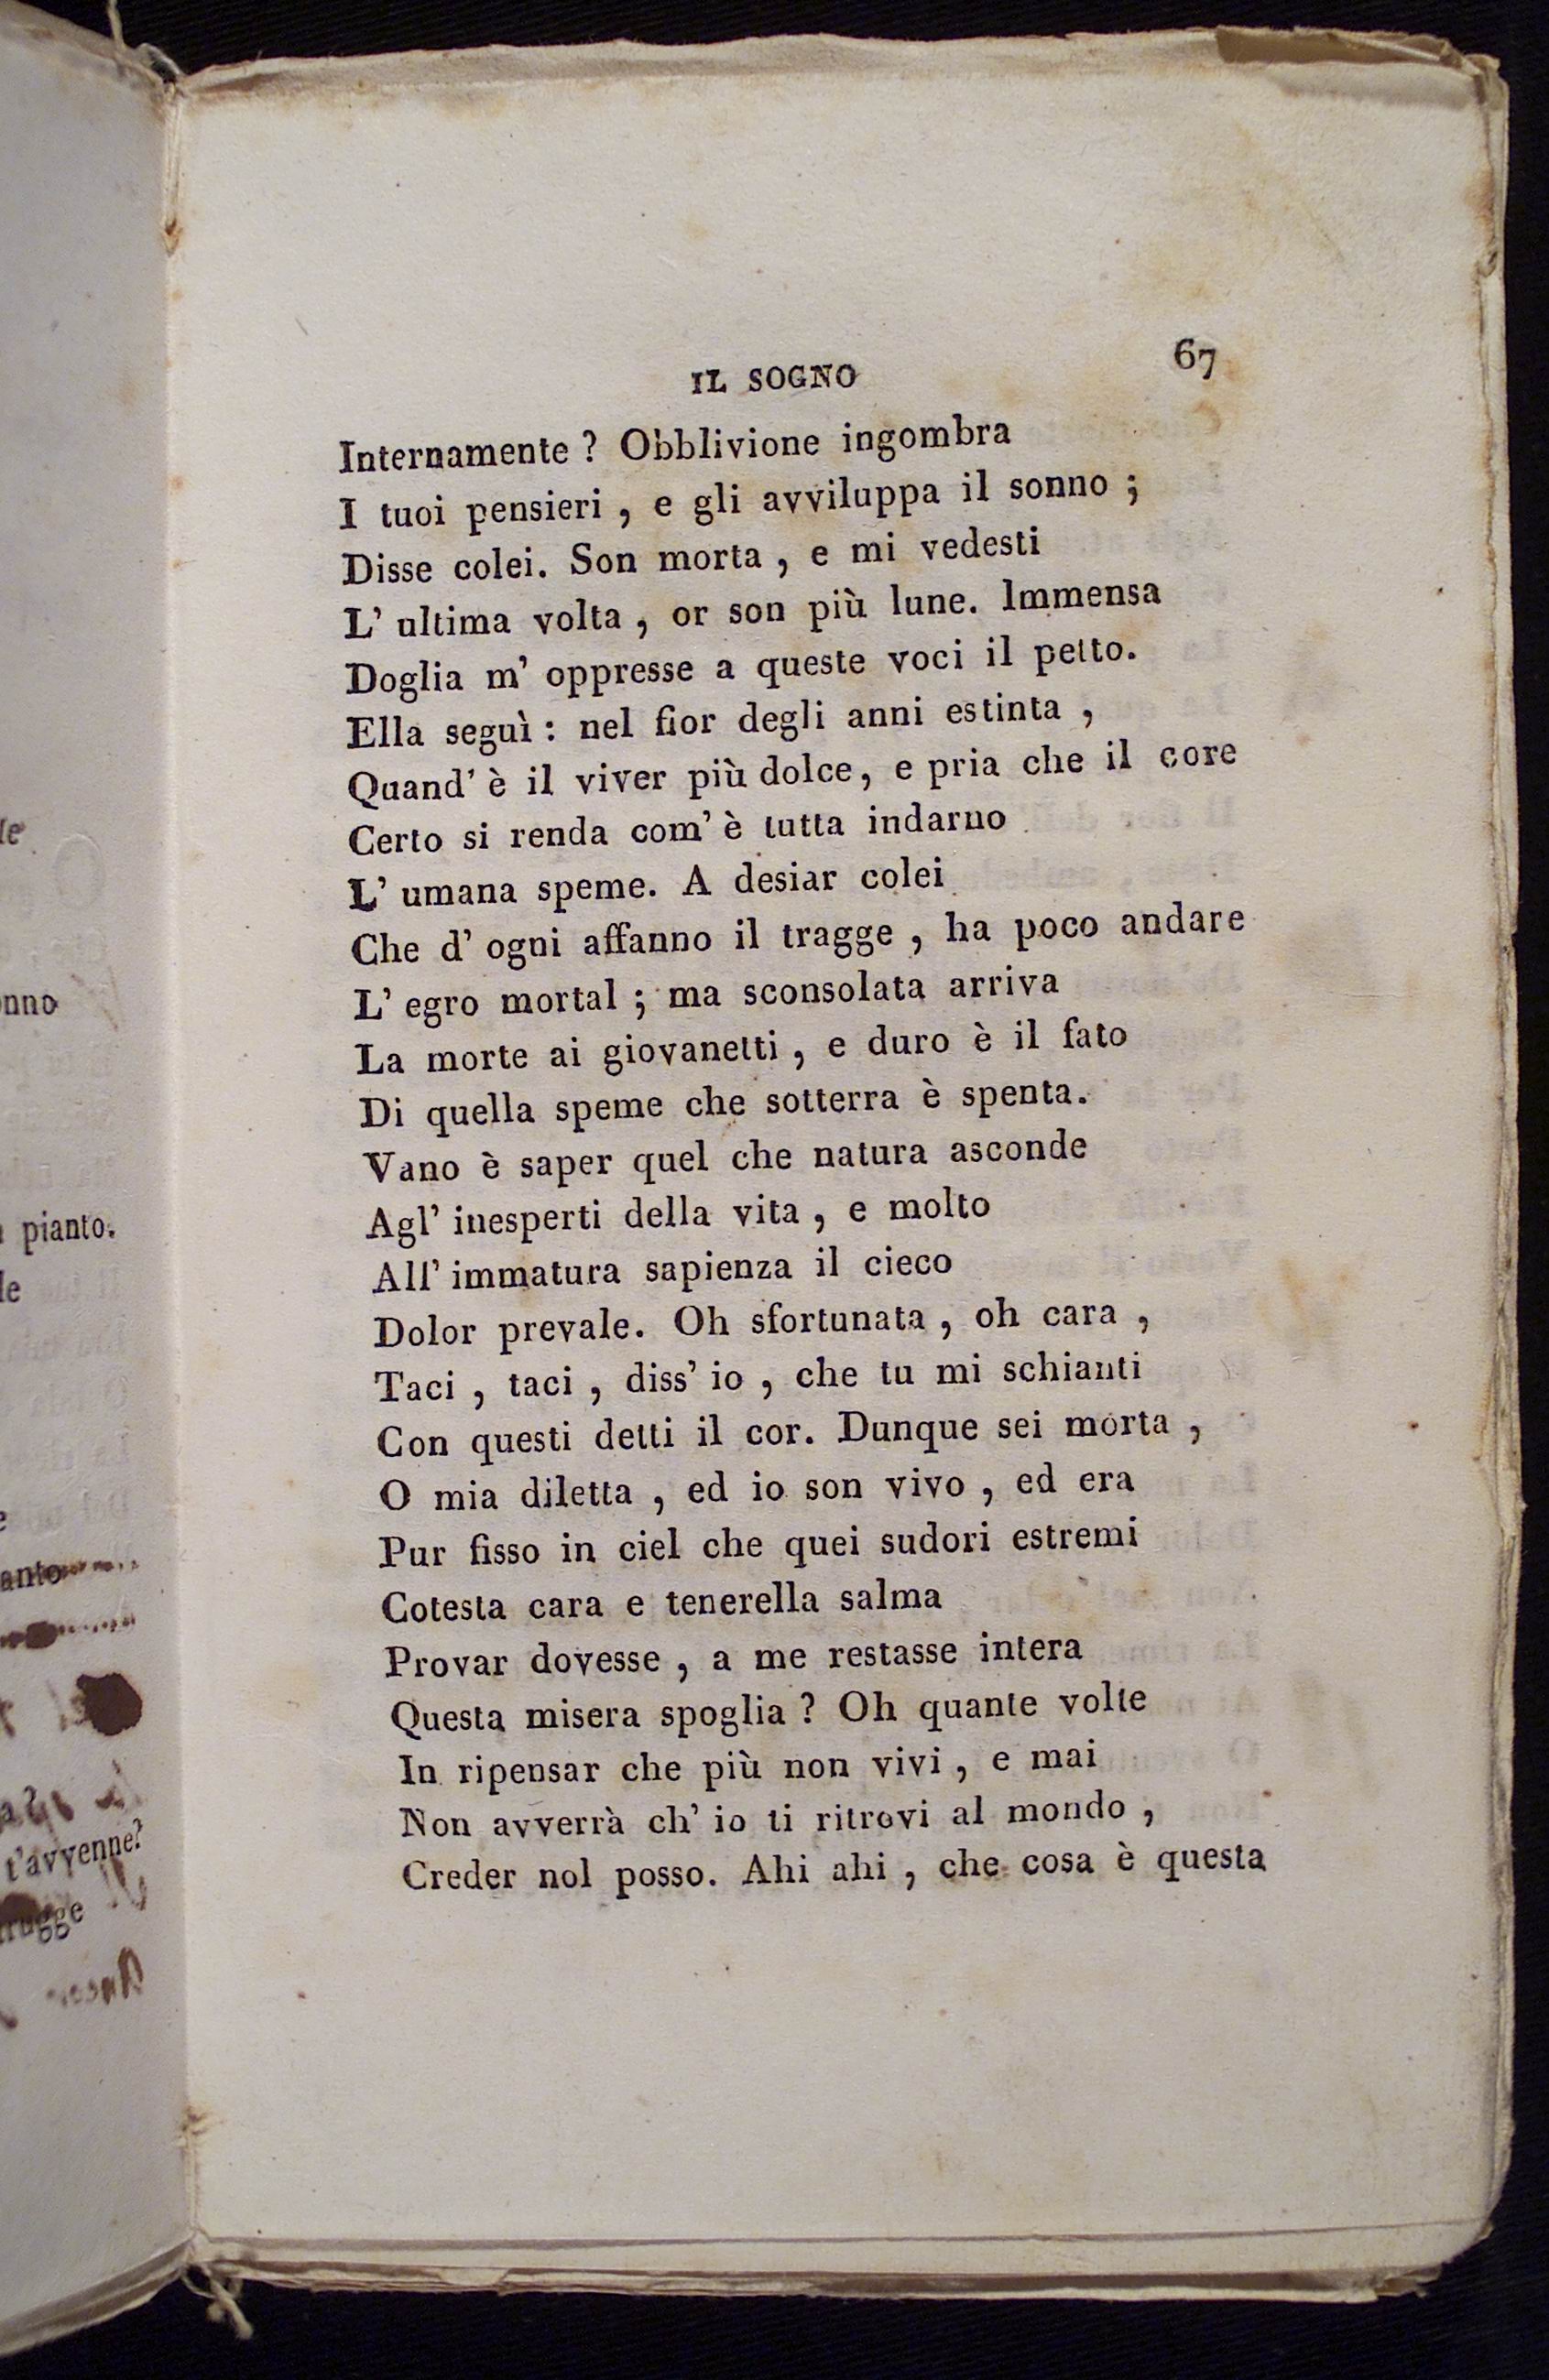 le
onno
pianto.
le
e
anto
t'avvenne?
rugge
IL SOGNO 67
Internamente ? Obblivione ingombra
I tuoi pensieri , e gli avviluppa il sonno ;
Disse colei. Son morta , e mi vedesti
L' ultima volta , or son più lune. Immensa
Doglia m' oppresse a queste voci il petto.
Ella seguì : nel fior degli anni estinta ,
Quand' è il viver più dolce, e pria che il core
Certo si renda com' è tutta indarno
L' umana speme. A desiar colei
Che d' ogni affanno il tragge , ha poco andare
L' egro mortal ; ma sconsolata arriva
La morte ai giovanetti , e duro è il fato
Di quella speme che sotterra è spenta.
Vano è saper quel che natura asconde
Agl' inesperti della vita , e molto
All' immatura sapienza il cieco
Dolor prevale. Oh sfortunata , oh cara ,
Taci , taci , diss' io , che tu mi schianti
Con questi detti il cor. Dunque sei morta ,
O mia diletta , ed io son vivo , ed era
Pur fisso in ciel che quei sudori estremi
Cotesta cara e tenerella salma
Provar dovesse , a me restasse intera
Questa misera spoglia ? Oh quante volte
In ripensar che più non vivi , e mai
Non avverrà ch' io ti ritrovi al mondo ,
Creder nol posso. Ahi ahi , che cosa è questa